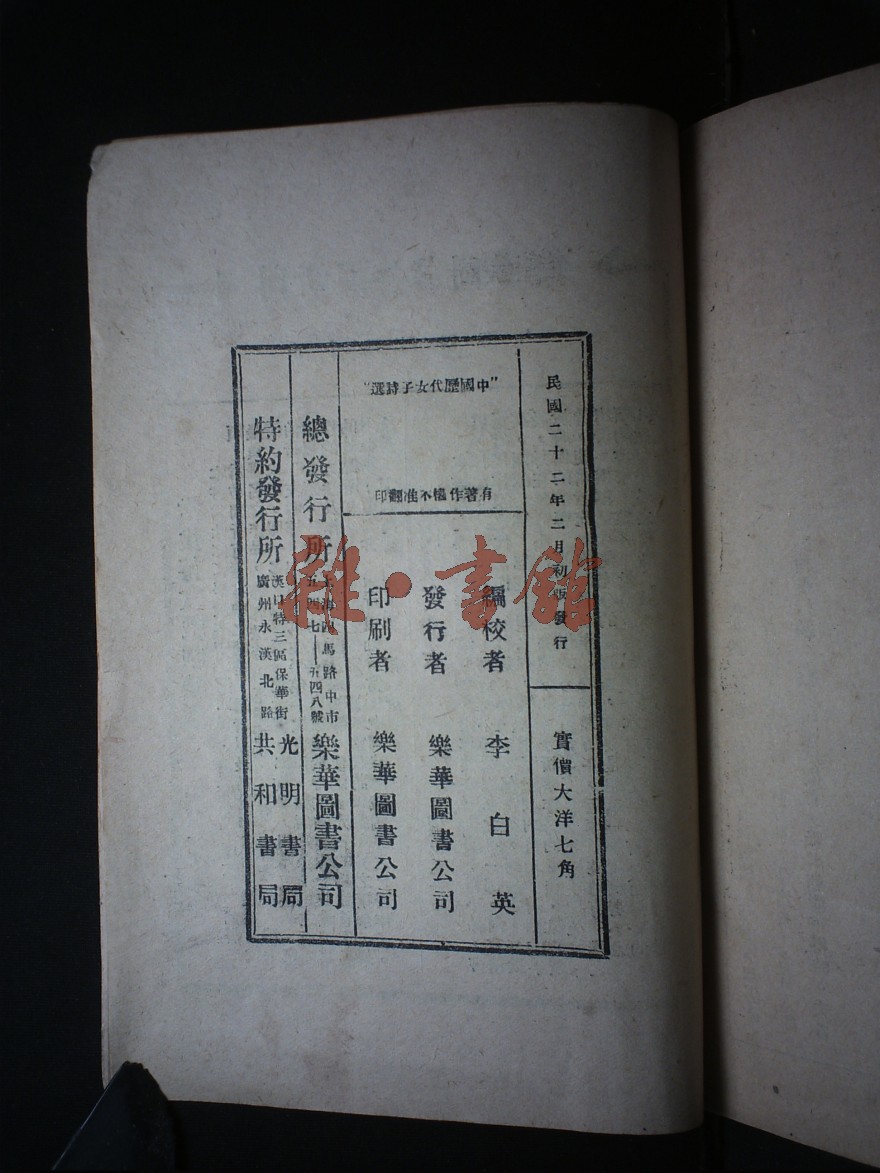 民國二十二年二月初版發行
實價大洋七角
"中國歷代女子詩選"
有著作權不准翻印
編校者 李白英
發行者 樂華圖書公司
印刷者 樂華圖書公司
總發行所 上海四馬路中市五四七——五四八號 樂華圖書公司
特約發行所
漢口特三區保華街 光明書局
廣州永漢北路 共和書局
雜·書館